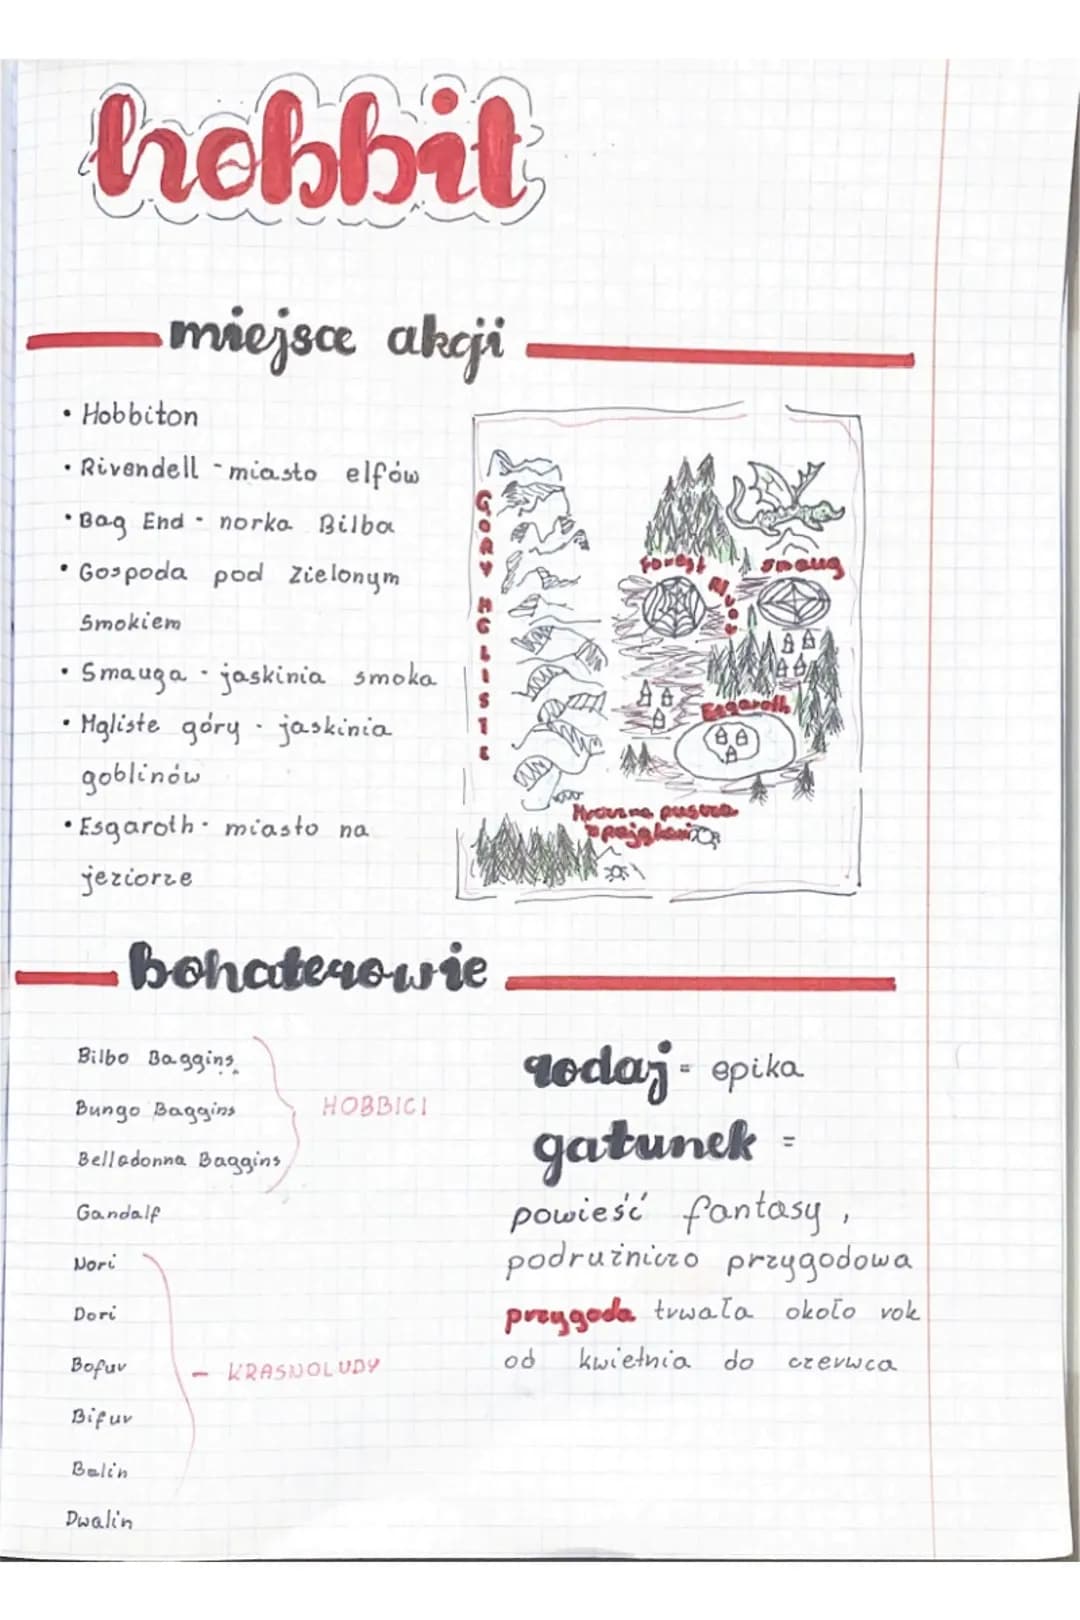 hobbit
miejsce akcji
• Hobbiton
• Rivendell - miasto elfów
• Bag End - norka Bilba
• Gospoda pod Zielonym
Smokiem
• Smauga - jaskinia smoka
• Mgliste góry - jaskinia
goblinów
• Esgaroth - miasto na
jeziorze
GÓRY MGLISTE
Forest River
Smaug
Esgaroth
Mroczna puszcza
z pająkami
bohaterowie
Bilbo Baggins
Bungo Baggins
Belladonna Baggins
HOBBICI
Gandalf
Nori
Dori
Bofur
Bifur
Balin
Dwalin
- KRASNOLUDY
rodaj = epika
gatunek =
powieść fantasy,
podrużniczo przygodowa
przygoda trwała około rok
od kwietnia do czerwca